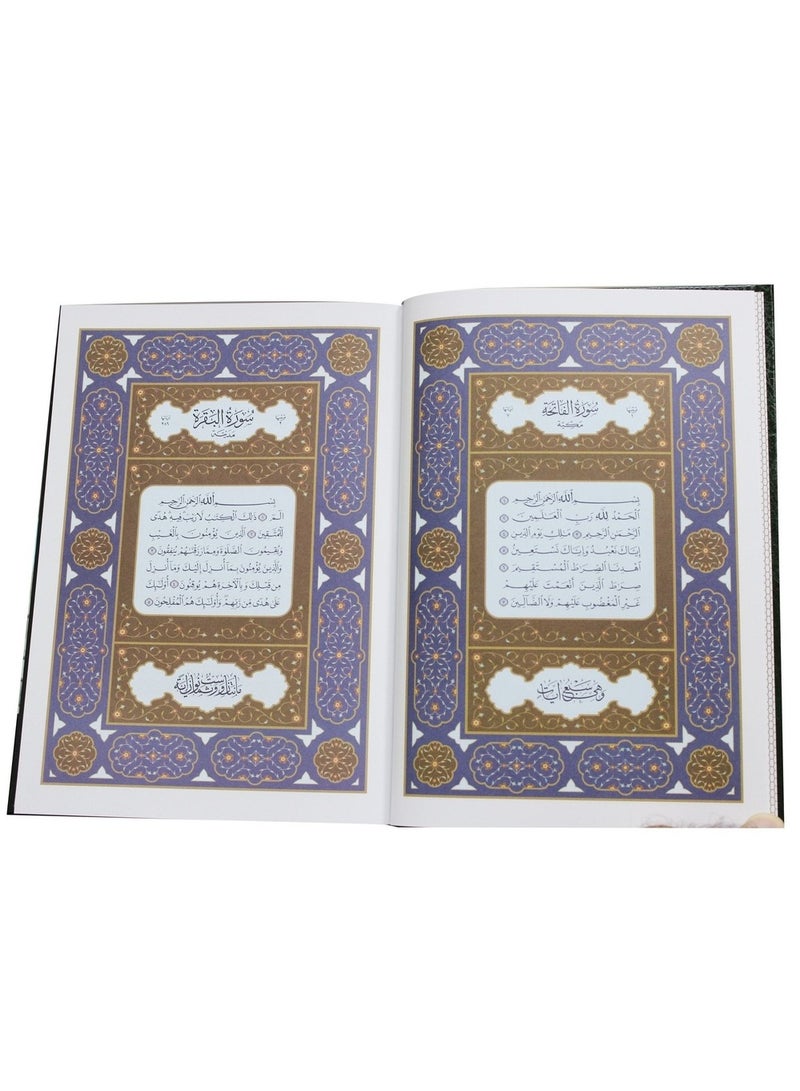 سُورَةُ الفَاتِحَةِ
مَكِّيَّة
بِسْمِ ٱللَّهِ ٱلرَّحْمَٰنِ ٱلرَّحِيمِ ۝١
ٱلْحَمْدُ لِلَّهِ رَبِّ ٱلْعَٰلَمِينَ ۝٢
ٱلرَّحْمَٰنِ ٱلرَّحِيمِ ۝٣ مَٰلِكِ يَوْمِ ٱلدِّينِ ۝٤
إِيَّاكَ نَعْبُدُ وَإِيَّاكَ نَسْتَعِينُ ۝٥
ٱهْدِنَا ٱلصِّرَٰطَ ٱلْمُسْتَقِيمَ ۝٦
صِرَٰطَ ٱلَّذِينَ أَنْعَمْتَ عَلَيْهِمْ
غَيْرِ ٱلْمَغْضُوبِ عَلَيْهِمْ وَلَا ٱلضَّآلِّينَ ۝٧
وَهِيَ سَبْعُ آيَات
سُورَةُ البَقَرَةِ
مَدَنِيَّة
بِسْمِ ٱللَّهِ ٱلرَّحْمَٰنِ ٱلرَّحِيمِ
الٓمٓ ۝١ ذَٰلِكَ ٱلْكِتَٰبُ لَا رَيْبَ فِيهِ هُدًى
لِّلْمُتَّقِينَ ۝٢ ٱلَّذِينَ يُؤْمِنُونَ بِٱلْغَيْبِ
وَيُقِيمُونَ ٱلصَّلَوٰةَ وَمِمَّا رَزَقْنَٰهُمْ يُنفِقُونَ ۝٣
وَٱلَّذِينَ يُؤْمِنُونَ بِمَآ أُنزِلَ إِلَيْكَ وَمَآ أُنزِلَ
مِن قَبْلِكَ وَبِٱلْءَاخِرَةِ هُمْ يُوقِنُونَ ۝٤ أُو۟لَٰٓئِكَ
عَلَىٰ هُدًى مِّن رَّبِّهِمْ وَأُو۟لَٰٓئِكَ هُمُ ٱلْمُفْلِحُونَ ۝٥